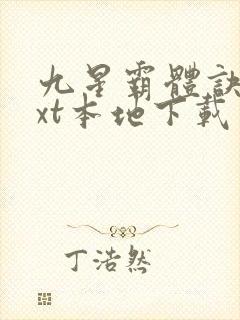 九星霸體訣
xt本地下載
丁浩然